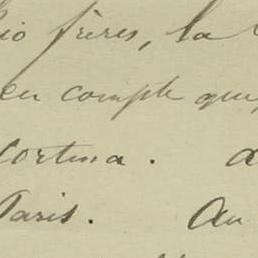 io frères, la
en compte que,
Cortina. a
Paris. Au